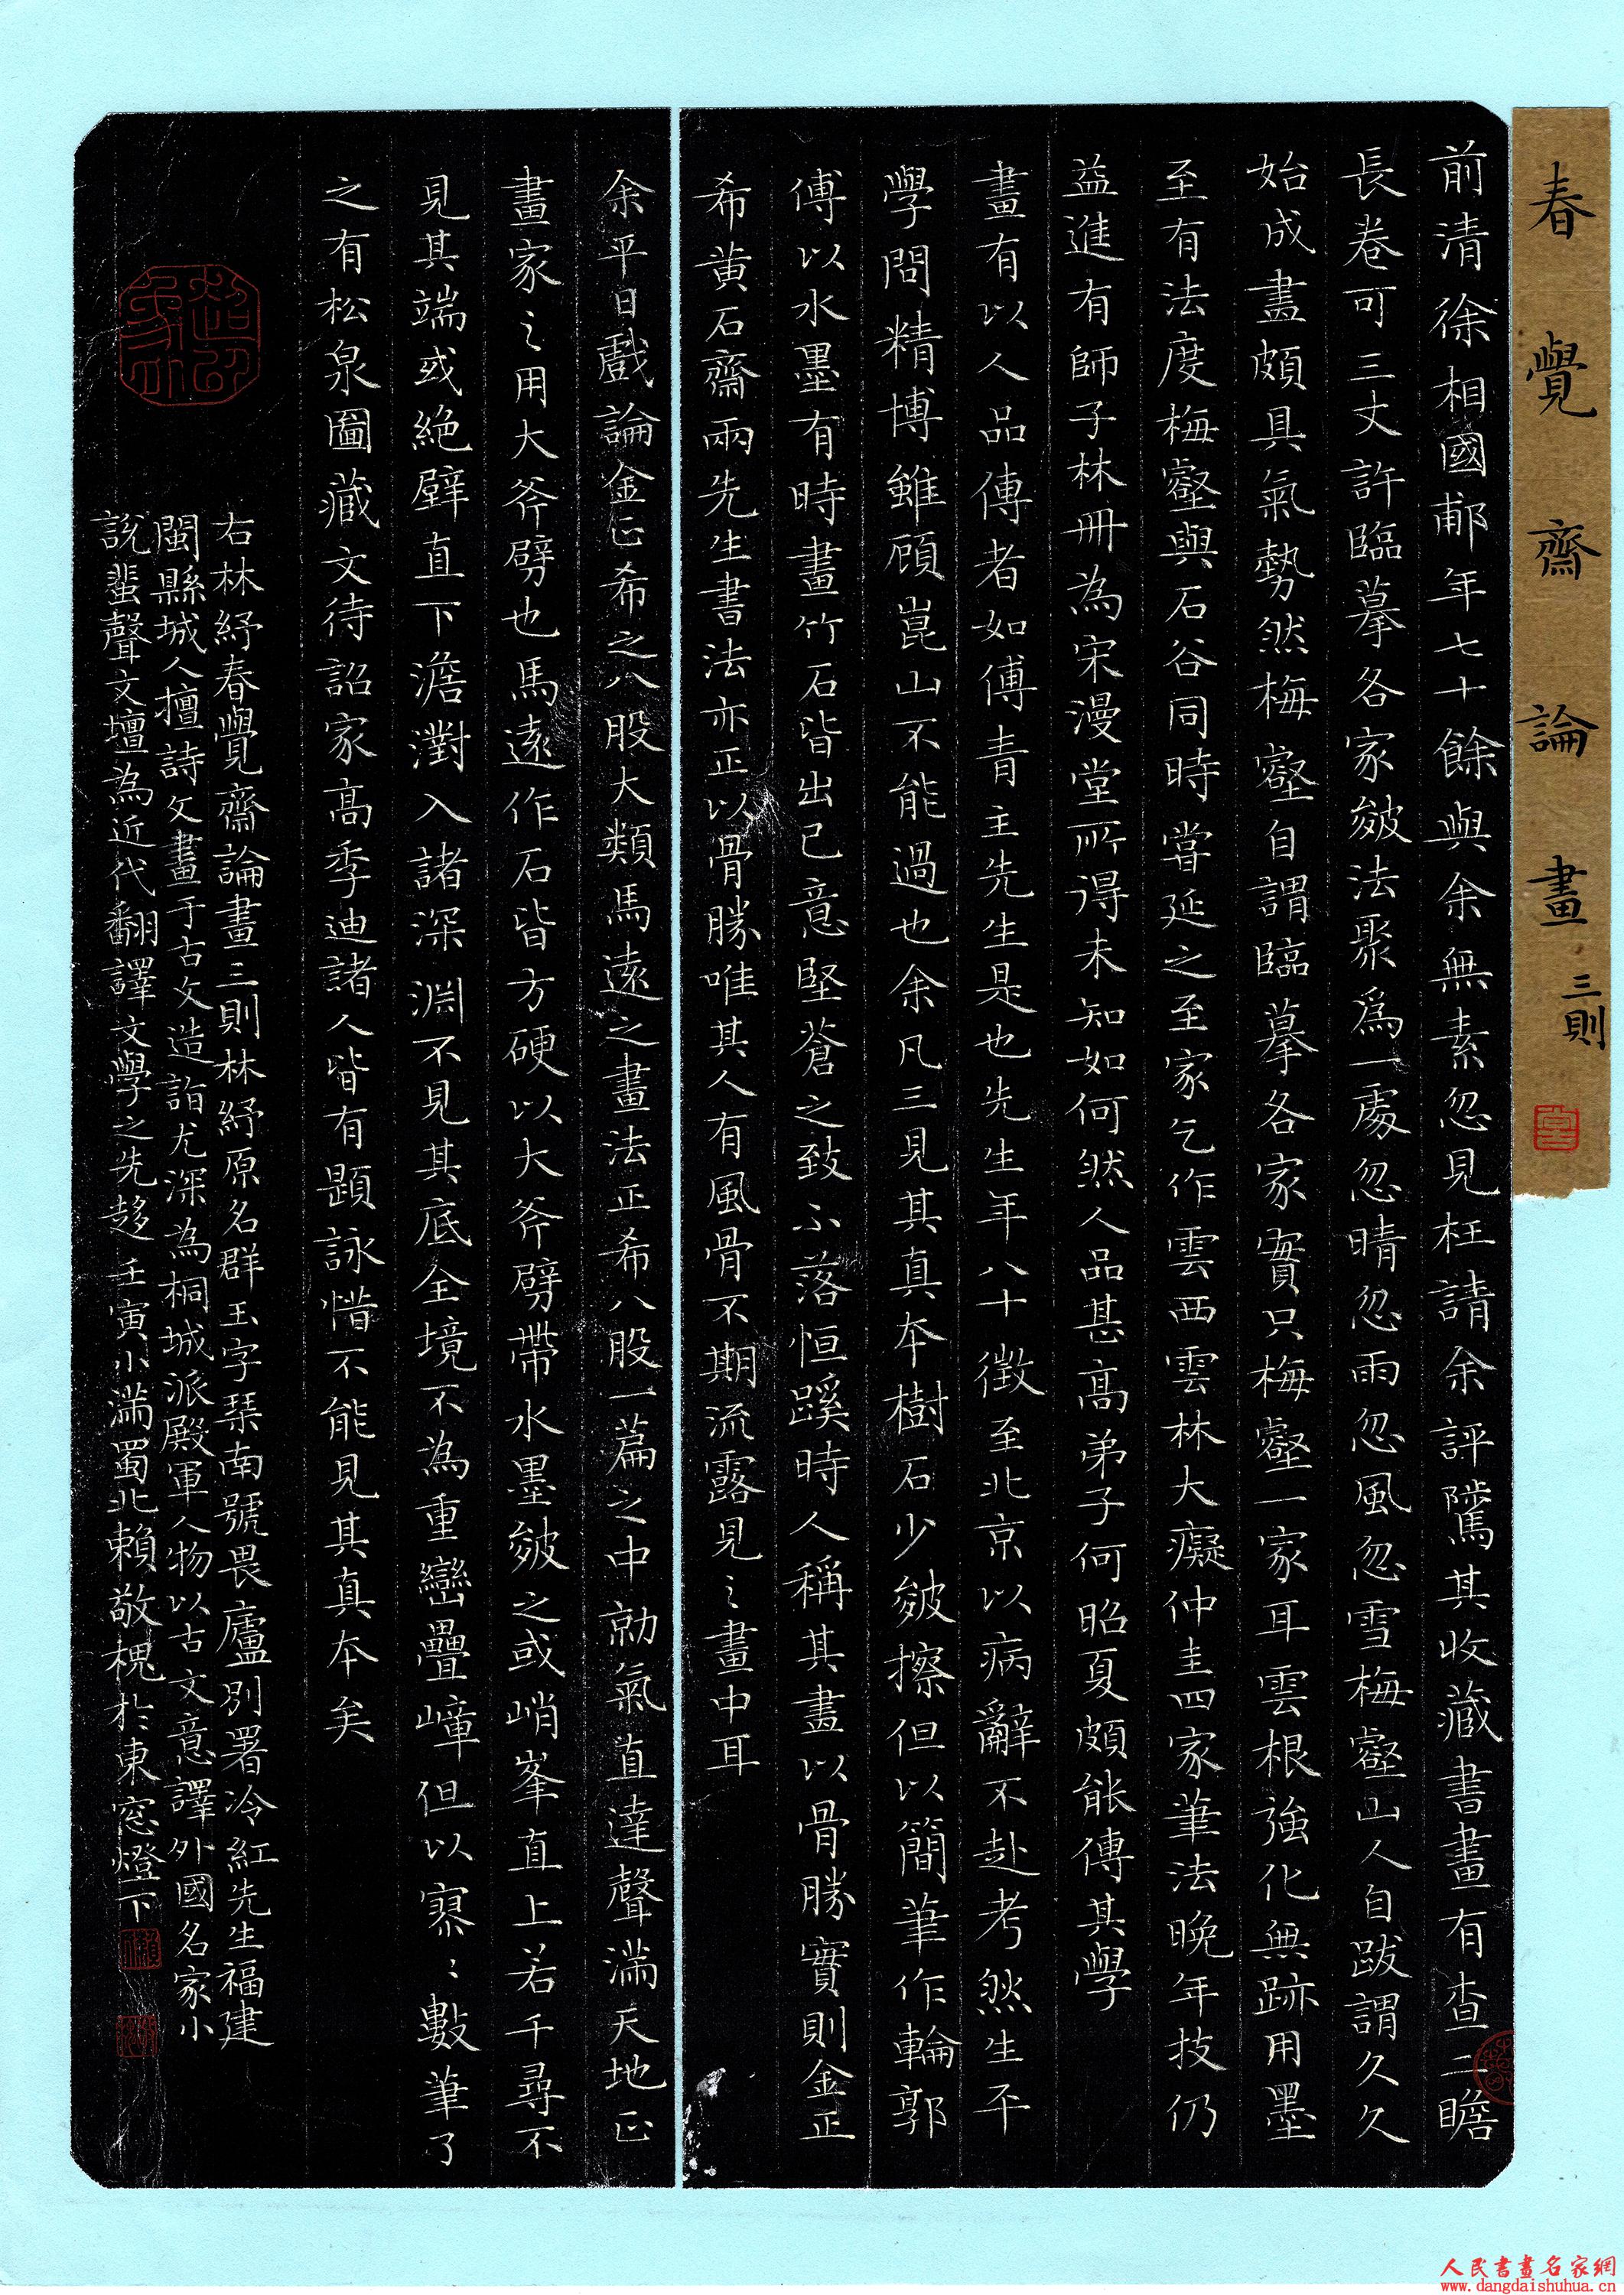 春覺齋論畫 三則
前清徐相國郙年七十餘與余無素忽見枉請余評騭其收藏書畫有查二瞻
長卷可三丈許臨摹各家皴法聚爲一處忽晴忽雨忽風忽雪梅壑山人自跋謂久久
始成畫頗具氣勢然梅壑自謂臨摹各家實只梅壑一家耳雲根強化無跡用墨
至有法度梅壑與石谷同時嘗延之至家乞作雲西雲林大癡仲圭四家筆法晚年技仍
益進有師子林冊為宋漫堂所得未知如何然人品甚高弟子何昭夏頗能傳其學
畫有以人品傳者如傅青主先生是也先生年八十徵至北京以病辭不赴考然生平
學問精博雖顧崑山不能過也余凡三見其真本樹石少皴擦但以簡筆作輪郭
傅以水墨有時畫竹石皆出己意堅蒼之致不落恒蹊時人稱其畫以骨勝實則金正
希黃石齋兩先生書法亦正以骨勝唯其人有風骨不期流露見之畫中耳
余平日戲論金正希之八股大類馬遠之畫法正希八股一篇之中勍氣直達聲滿天地正
畫家之用大斧劈也馬遠作石皆方硬以大斧劈帶水墨皴之或峭峯直上若千尋不
見其端或絕壁直下澹濧入諸深淵不見其底全境不為重巒疊嶂但以寥寥數筆了
之有松泉圖藏文待詔家高季迪諸人皆有題詠惜不能見其真本矣
右林紓春覺齋論畫三則林紓原名群玉字琹南號畏廬別署冷紅先生福建
閩縣城人擅詩文畫于古文造詣尤深為桐城派殿軍人物以古文意譯外國名家小
說蜚聲文壇為近代翻譯文學之先趍壬寅小滿蜀北賴敬槐於東窓燈下
人民書畫名家網
www.dangdaishuhua.cn